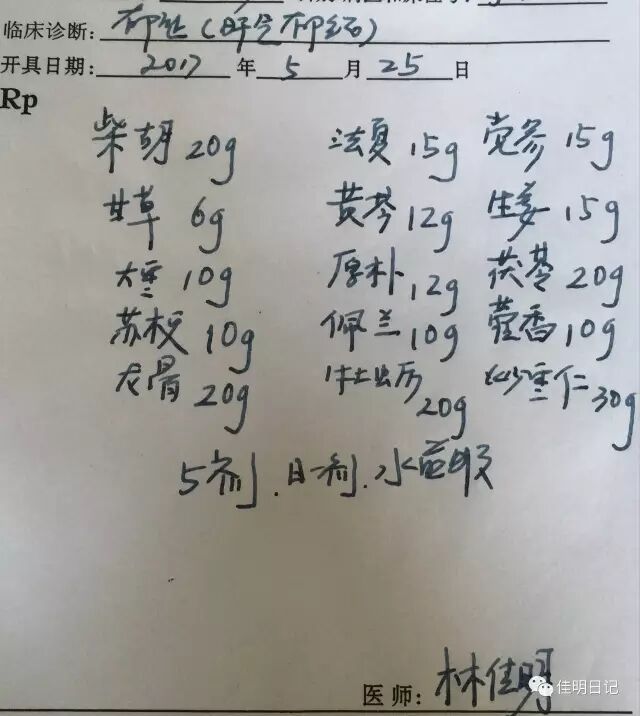 临床诊断: 郁证(肝气郁结)
开具日期: 2017 年 5 月 25 日
Rp
柴胡 20g 法夏 15g 党参 15g
甘草 6g 黄芩 12g 生姜 15g
大枣 10g 厚朴 12g 茯苓 20g
苏梗 10g 佩兰 10g 藿香 10g
龙骨 20g 牡蛎 20g 炒枣仁 30g
5剂.日一剂.水煎服
医师: 林佳明
佳明日记